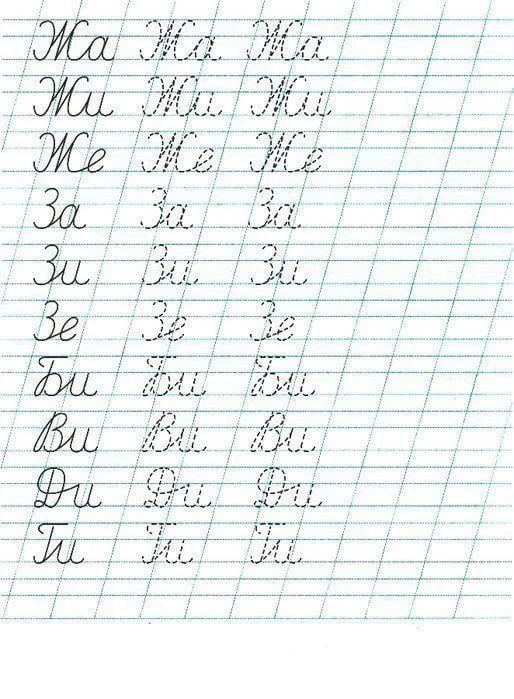 Жа Жа Жа
Жи Жи Жи
Же Же Же
За За За
Зи Зи Зи
Зе Зе Зе
Би Би Би
Ви Ви Ви
Ди Ди Ди
Ги Ги Ги